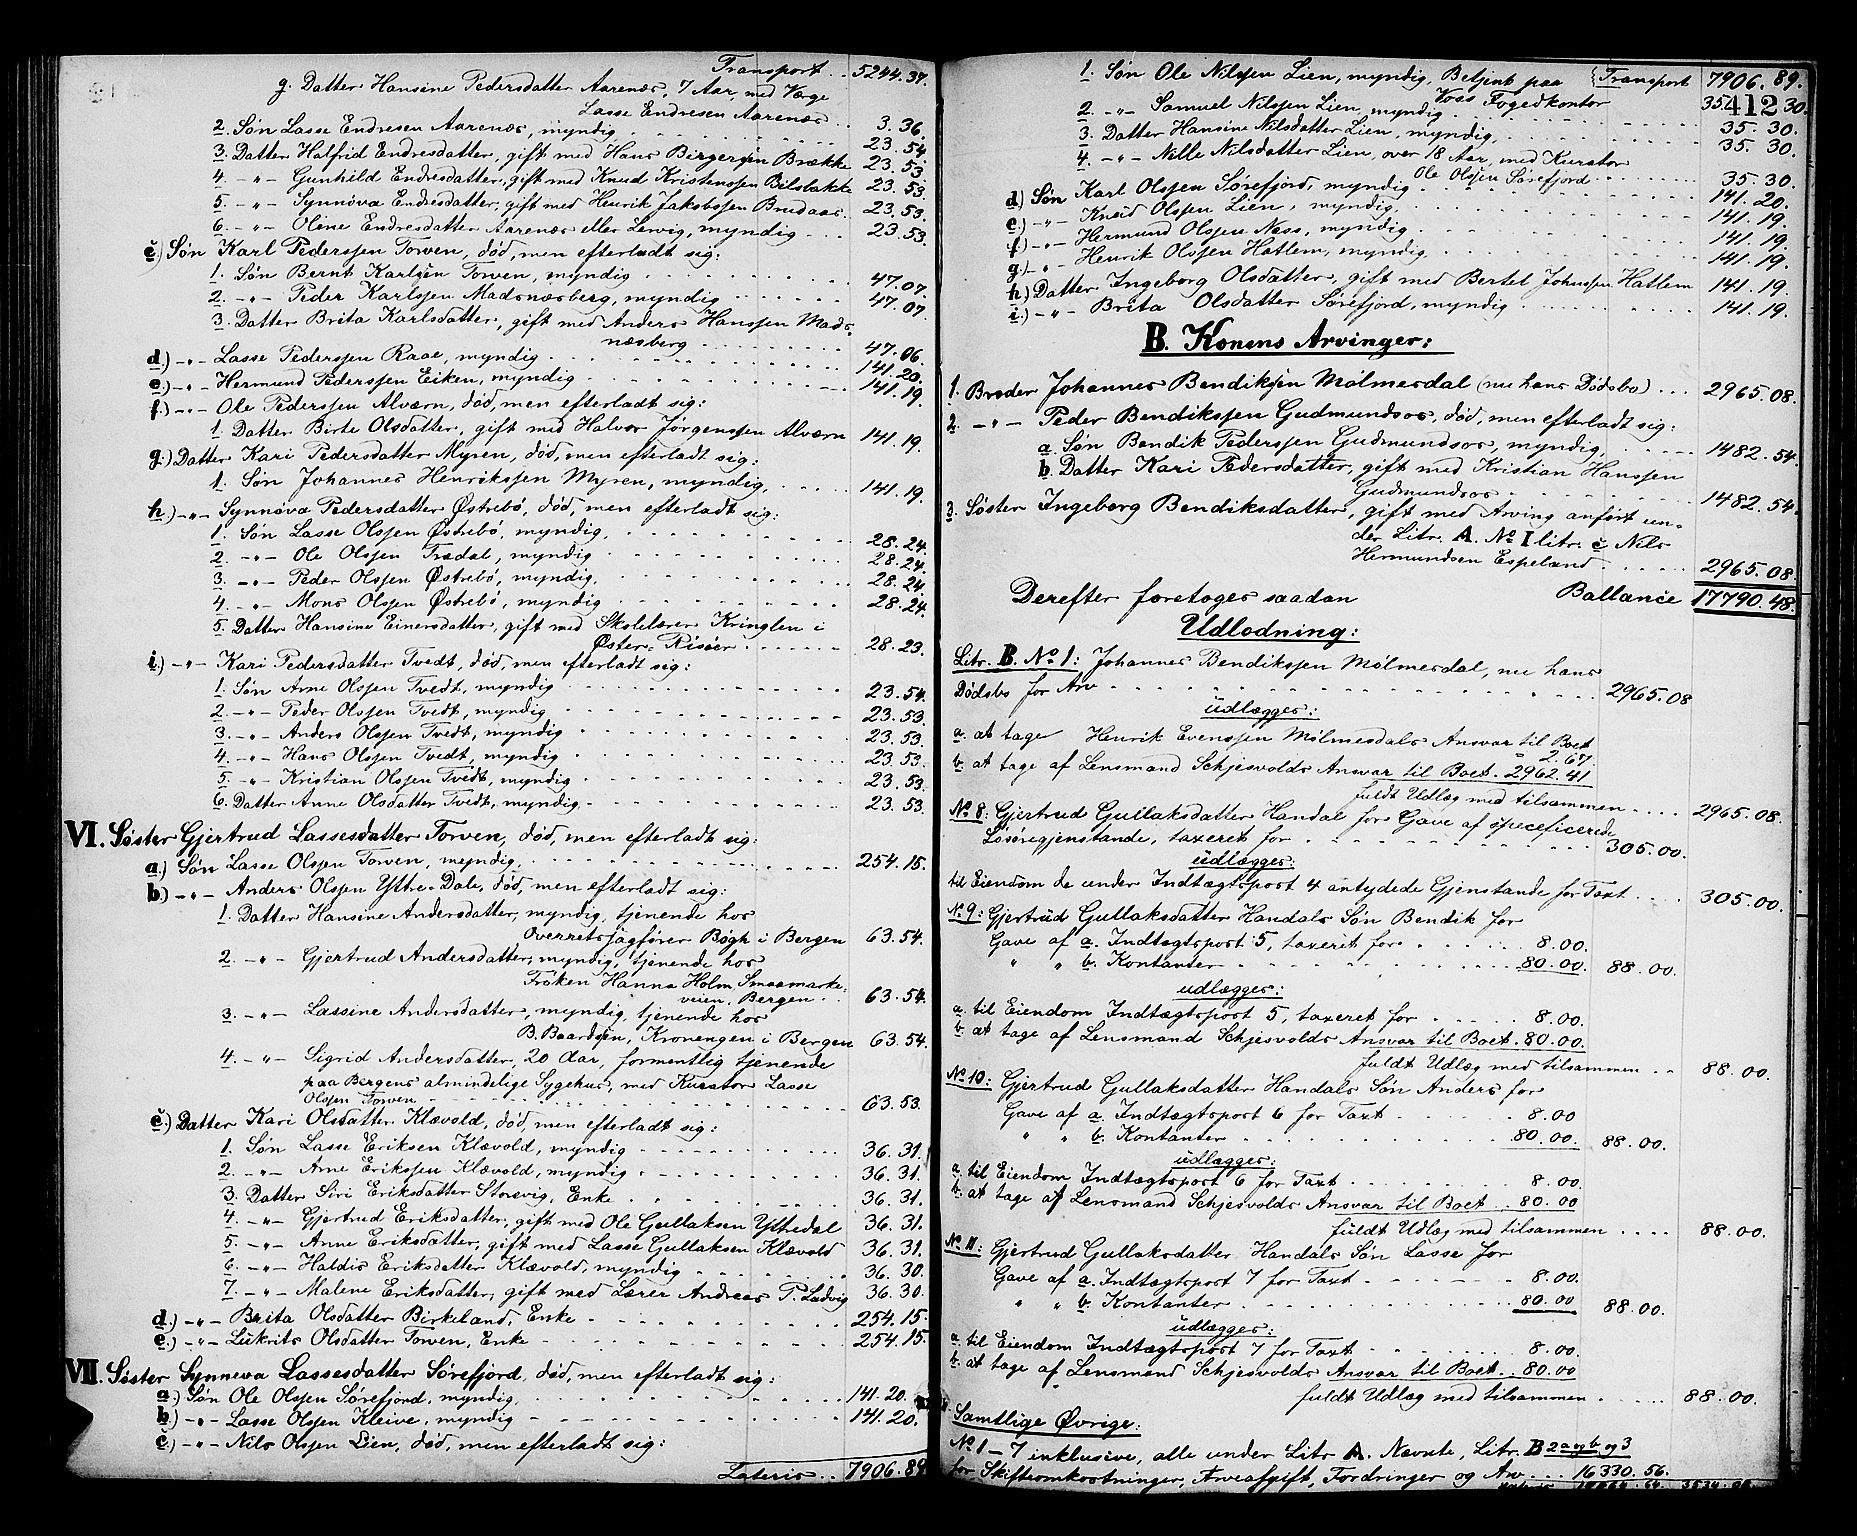 Transport .. 5244.37.
g. Datter Hansine Pedersdatter Aarenæs, 7 Aar, med Værge
Lasse Endresen Aarenæs .. 3.36.
2. Søn Lasse Endresen Aarenæs, myndig 23.54
3. Datter Halfrid Endresdatter, gift med Hans Birgersen Brække 23.53
4. -"- Gunhild Endresdatter, gift med Knud Kristenssen Bilsbakke 23.53.
5. -"- Synnøva Endresdatter, gift med Henrik Jakobssen Brudaas .. 23.53.
6. -"- Oline Endresdatter Aarenæs eller Lervig, myndig 23.53.
c.) Søn Karl Pederssen Torven, død, men efterladt sig:
1. Søn Bernt Karlsen Torven, myndig 47.07.
2. -"- Peder Karlssen Madsnæsberg, myndig 47.07.
3. Datter Brita Karlsdatter, gift med Anders Hanssen Mads-
næsberg 47.06.
d.) -"- Lasse Pederssen Raae, myndig 141.20.
e.) -"- Hermund Pederssen Eiken, myndig 141.19.
f.) -"- Ole Pederssen Alværn, død, men efterladt sig:
1. Datter Birte Olsdatter, gift med Halvor Jörgenssen Alværn 141.19.
g.) Datter Kari Pedersdatter Myren, død, men efterladt sig:
1. Søn Johannes Henrikssen Myren, myndig, 141.19.
h.) -"- Synnøva Pedersdatter Østrebö, död, men efterladt sig:
1. Søn Lasse Olssen Østrebö, myndig, 28.24.
2. -"- Ole Olssen Trædal, myndig 28.24.
3. -"- Peder Olssen Østrebö, myndig, 28.24.
4. -"- Mons Olssen Østrebö, myndig 28.24.
5. Datter Hansine Einersdatter, gift med Skolelærer Kringlen i
Øster-Risöer 28.23.
i.) -"- Kari Pedersdatter Tvedt, död, men efterladt sig:
1. Søn Arne Olssen Tvedt, myndig 23.54.
2. -"- Peder Olssen Tvedt, myndig 23.53.
3. -"- Anders Olssen Tvedt, myndig 23.53.
4. -"- Hans Olssen Tvedt, myndig 23.53.
5. -"- Kristian Olssen Tvedt, myndig 23.53.
6. Datter Anne Olsdatter Tvedt, myndig 23.53.
VI. Søster Gjertrud Lassesdatter Torven, död, men efterladt sig:
a.) Søn Lasse Olssen Torven, myndig, 254.15.
b.) -"- Anders Olssen Yttre-Dale, død, men efterladt sig:
1. Datter Hansine Andersdatter, myndig, tjenende hos
Overretssagfører Bøgh i Bergen 63.54.
2. -"- Gjertrud Andersdatter, myndig, tjenende hos
Frøken Hanna Holm, Smaamarke-
veien, Bergen 63.54.
3. -"- Lassine Andersdatter, myndig, tjenende hos
B. Baardsen, Kronengen i Bergen 63.54.
4. -"- Sigrid Andersdatter, 20 Aar, formentlig tjenende
paa Bergens almindelige Sygehus, med Kurator Lasse
Olssen Torven 63.53.
c.) Datter Kari Olsdatter Klævold, død, men efterladt sig:
1. Søn Lasse Eriksen Klævold, myndig 36.31.
2. -"- Arne Erikssen Klævold, myndig 36.31.
3. Datter Siri Eriksdatter Storsvig, Enke 36.31.
4. -"- Gjertrud Eriksdatter, gift med Ole Gullaksen Yttredal 36.31.
5. -"- Anne Eriksdatter, gift med Lasse Gullaksen Klævold 36.31.
6. -"- Haldis Eriksdatter Klævold, myndig 36.30.
7. -"- Malene Eriksdatter, gift med Lærer Andreas P. Ladvig 36.30.
d.) -"- Brita Olsdatter Birkeland, Enke 254.15.
e.) -"- Lukrits Olsdatter Torven, Enke 254.15.
VII. Søster Synneva Lassesdatter Sørefjord, död, men efterladt sig:
a.) Søn Ole Olssen Sørefjord, myndig, 141.20.
b.) -"- Lasse Olssen Kleive, myndig 141.20.
c.) -"- Nils Olssen Lien, død, men efterladt sig:
Lateris .. 7906.89.
1. Søn Ole Nilssen Lien, myndig, Betjent paa Transport 7906.89.
Voss Fogedkontor 35.30.
412
2. -"- Samuel Nilssen Lien, myndig 35.30.
3. Datter Hansine Nilsdatter Lien, myndig, 35.30.
4. -"- Nille Nilsdatter Lien, over 18 Aar, med Kurator
Ole Olssen Sørefjord 35.30.
d.) Søn Karl Olssen Sørefjord, myndig 141.20.
e.) -"- Knud Olssen Lien, myndig, 141.19.
f.) -"- Hermund Olssen Ness, myndig 141.19.
g.) -"- Henrik Olssen Hatlem, myndig, 141.19.
h.) Datter Ingeborg Olsdatter, gift med Bertel Johnssen Hatlem 141.19.
i.) -"- Brita Olsdatter Sørefjord, myndig 141.19.
B. Konens Arvinger:
1. Broder Johannes Bendiksen Mölmesdal (nu hans Dødsbo) ... 2965.08.
2. -"- Peder Bendikssen Gudmundsos, død, men efterladt sig:
a. Søn Bendik Pederssen Gudmundsos, myndig, 1482.54.
b. Datter Kari Pedersdatter, gift med Kristian Hanssen
Gudmundsos 1482.54.
3. Søster Ingeborg Bendiksdatter, gift med Arving anført un-
der Litr. A. No I litr. c Nils
Hermundsen Espeland 2965.08.
Derefter foretoges saadan Ballance 17790.48.
Udlodning:
Litr. B. No 1: Johannes Bendikssen Mölmesdal, nu hans
Dødsbo for Arv 2965.08
udlægges:
a. at tage Henrik Evenssen Mölmesdals Ansvar til Boet
2.67.
b. at tage af Lensmand Schjesvolds Ansvar til Boet. 2962.41
fuldt Udlæg med tilsammen .... 2965.08.
No 8: Gjertrud Gullaksdatter Handal for Gave af specificerede
Løsøregjenstande, taxeret for 305.00.
udlægges:
til Eiendom de under Indtægtspost 4 antydede Gjenstande for Taxt .... 305.00.
No 9: Gjertrud Gullaksdatter Handals Søn Bendik for
Gave af a. Indtægtspost 5, taxeret for 8.00.
" " b. Kontanter 80.00. 88.00.
udlægges:
a. til Eiendom Indtægtspost 5, taxeret for 8.00.
b. at tage af Lensmand Schjesvolds Ansvar til Boet. 80.00.
fuldt Udlæg med tilsammen .. 88.00.
No 10: Gjertrud Gullaksdatter Handals Søn Anders for
Gave af a. Indtægtspost 6 for Taxt 8.00
" " b. Kontanter 80.00. 88.00.
udlægges:
a. til Eiendom Indtægtspost 6 for Taxt 8.00.
b. at tage af Lensmand Schjesvolds Ansvar til Boet .. 80.00
fuldt Udlæg med tilsammen .... 88.00.
No 11: Gjertrud Gullaksdatter Handals Søn Lasse for
Gave af a. Indtægtspost 7 for Taxt 8.00.
" " b. Kontanter 80.00 88.00.
udlægges:
a. til Eiendom Indtægtspost 7 for Taxt 8.00.
b. at tage af Lensmand Schjesvolds Ansvar til Boet .. 80.00
fuldt Udlæg med tilsammen 88.00.
Samtlige Øvrige:
No 1-7 inklusive, alle under Litr. A. Nævnte, Litr. B 2 a og b og 3
for Skifteomkostninger, Arveafgift, Fordringer og Arv ... 16330.56.